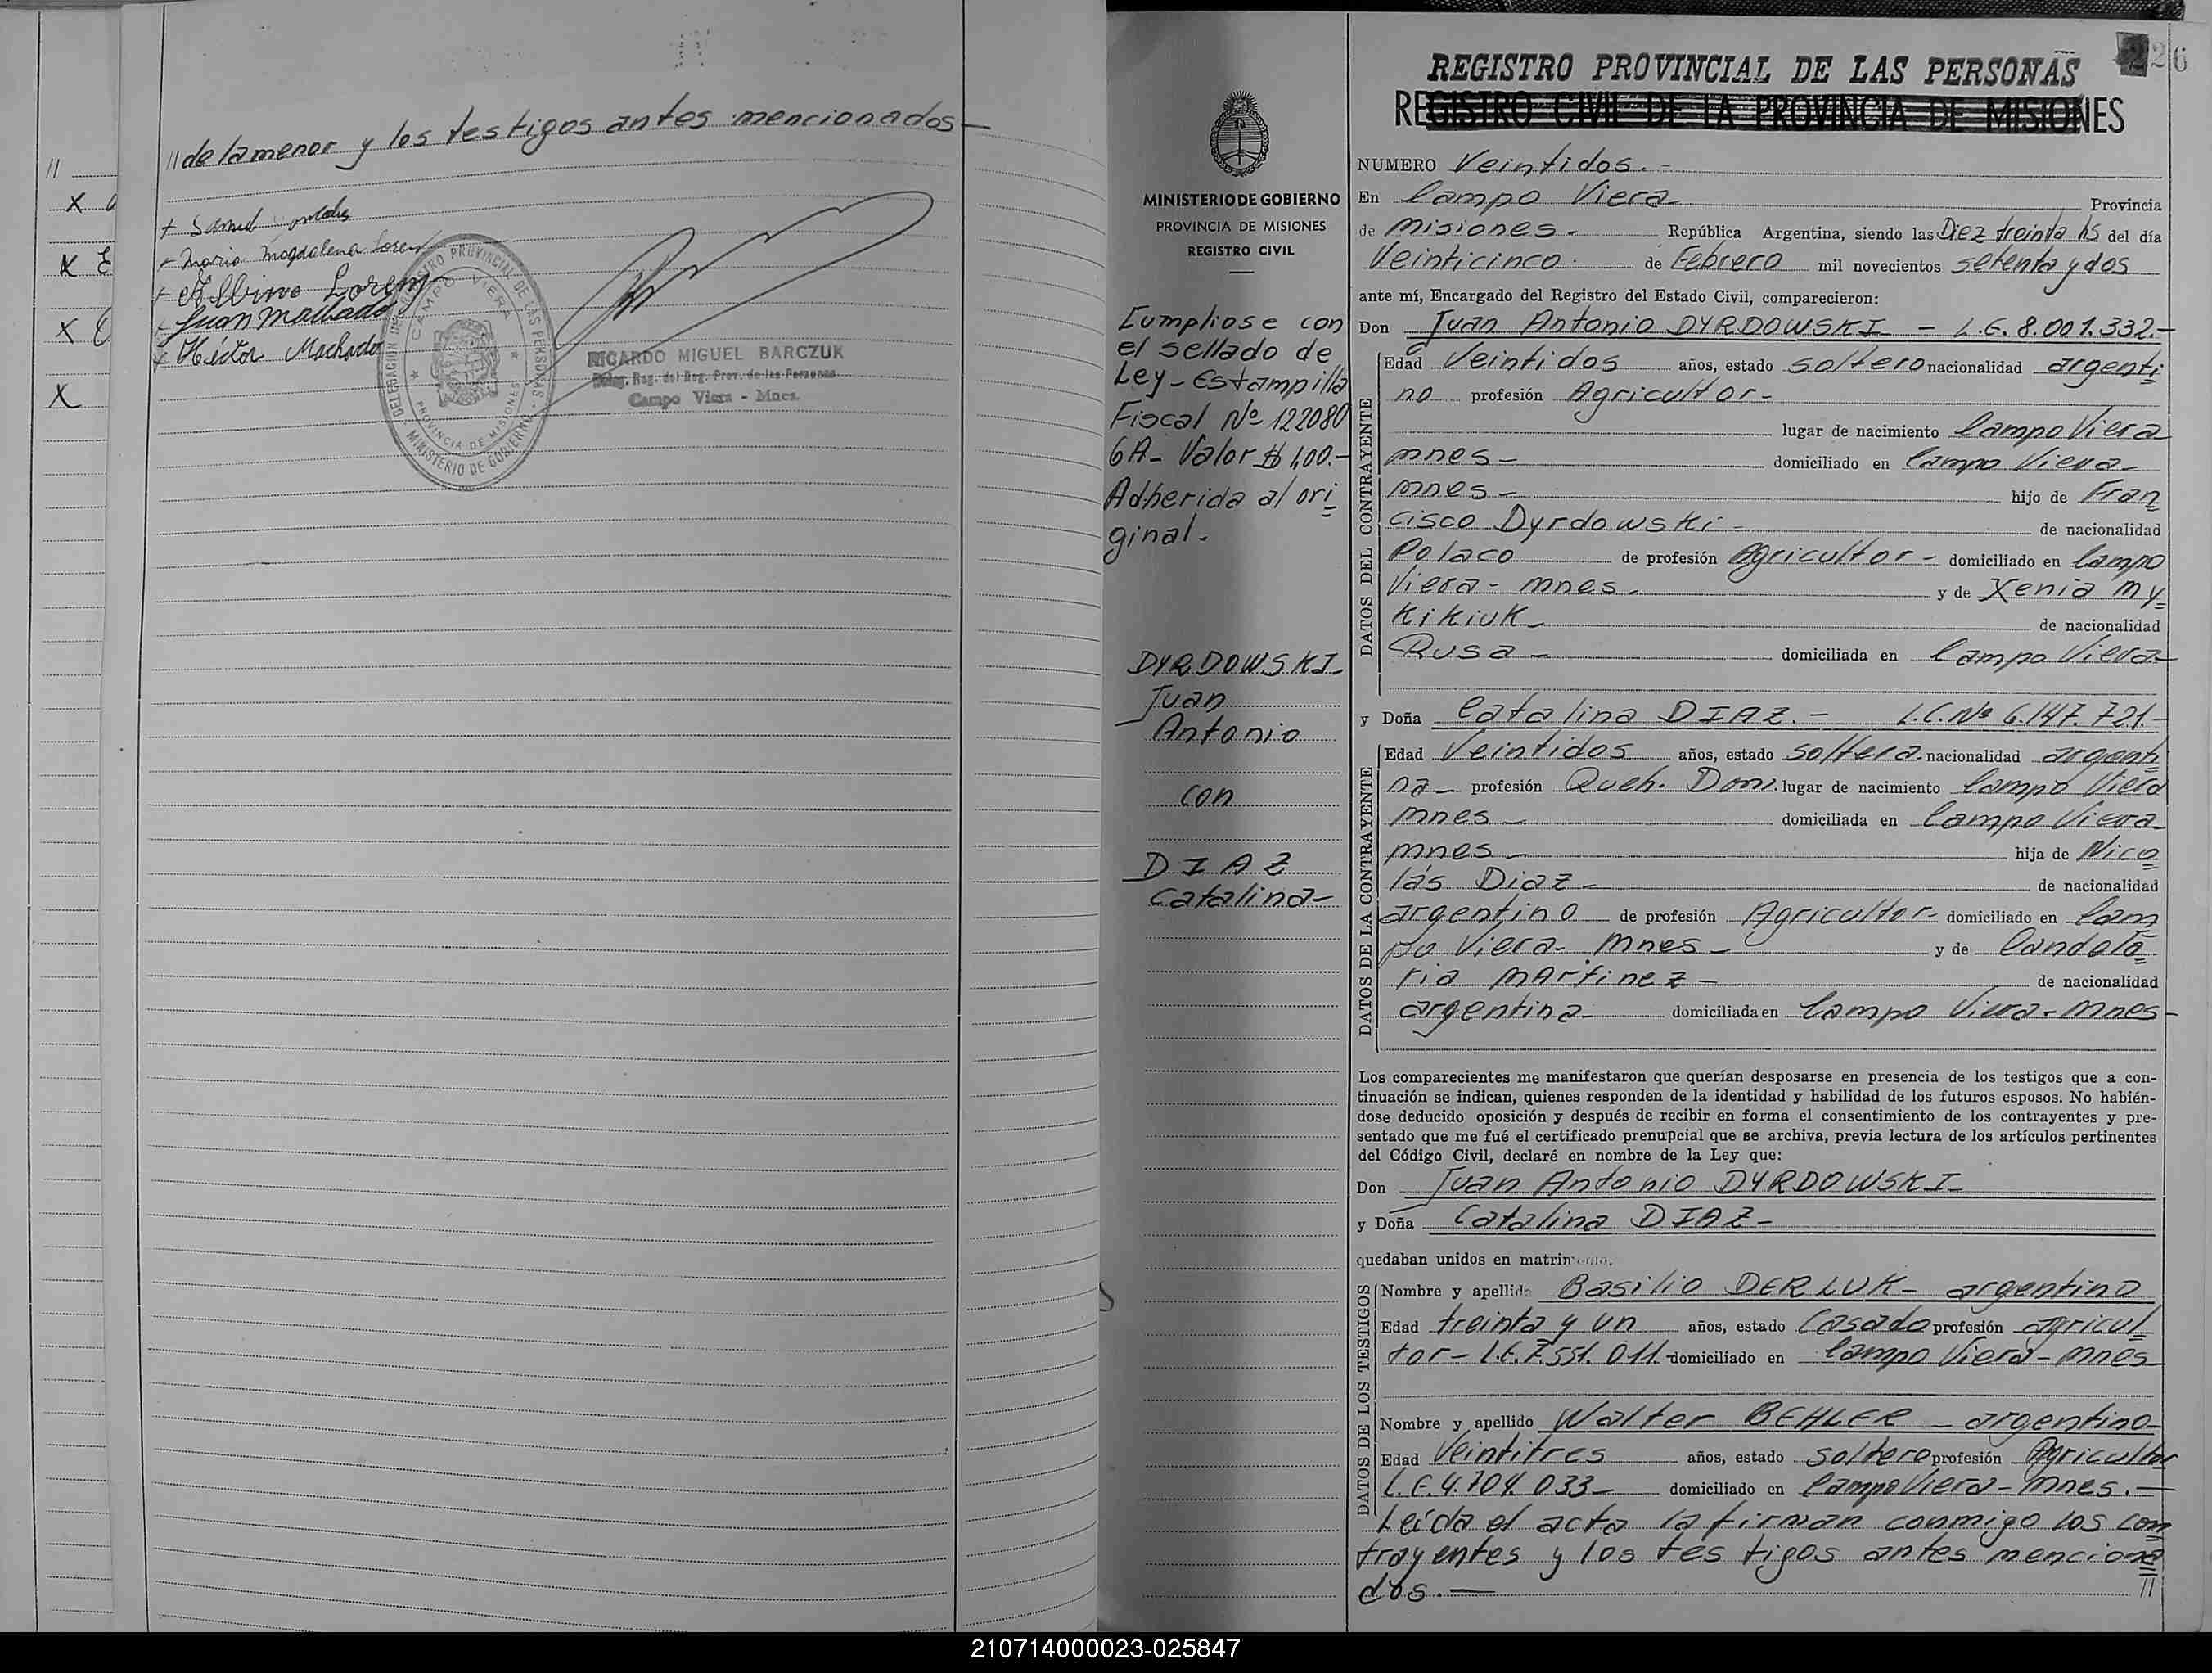 //
x
x E
x
x
// de la menor y los testigos antes mencionados-
+ Samuel
+ Maria Magdalena Lorenz
+ Albino Lorenz
+ Juan Machado
+ Héctor Machado
DELEGACION DEL REGISTRO PROVINCIAL DE LAS PERSONAS
CAMPO VIERA
PROVINCIA DE MISIONES
MINISTERIO DE GOBIERNO
RICARDO MIGUEL BARCZUK
Deleg. Reg. del Reg. Prov. de las Personas
Campo Viera - Mnes.
MINISTERIO DE GOBIERNO
PROVINCIA DE MISIONES
REGISTRO CIVIL
Cumpliose con
el sellado de
Ley - Estampilla
Fiscal Nº 122080
6A - Valor $ 1,00.-
Adherida al ori
ginal.-
DYRDOWSKI-
Juan
Antonio
con
DIAZ
Catalina-
226
REGISTRO PROVINCIAL DE LAS PERSONAS
REGISTRO CIVIL DE LA PROVINCIA DE MISIONES
NUMERO Veintidos.-
En Campo Viera Provincia
de Misiones- República Argentina, siendo las Diez treinta hs del día
Veinticinco. de Febrero mil novecientos setenta y dos
ante mí, Encargado del Registro del Estado Civil, comparecieron:
Don Juan Antonio DYRDOWSKI - L.E. 8.001.332.-
DATOS DEL CONTRAYENTE
Edad Veintidos años, estado soltero nacionalidad argenti
no profesión Agricultor-
lugar de nacimiento Campo Viera
Mnes- domiciliado en Campo Viera-
Mnes- hijo de Fran
cisco Dyrdowski- de nacionalidad
Polaco de profesión Agricultor- domiciliado en Campo
Viera- Mnes. y de Xenia My
kikiuk- de nacionalidad
Rusa- domiciliada en Campo Viera-
y Doña Catalina DIAZ.- L.C.Nº 6.147.721.-
DATOS DE LA CONTRAYENTE
Edad Veintidos años, estado soltera- nacionalidad argenti
na- profesión Queh. Dom. lugar de nacimiento Campo Viera
Mnes- domiciliada en Campo Viera-
Mnes- hija de Nico
lás Diaz- de nacionalidad
argentino de profesión Agricultor- domiciliado en Cam
po Viera- Mnes- y de Candela
ria Martinez- de nacionalidad
argentina- domiciliada en Campo Viera- Mnes-
Los comparecientes me manifestaron que querían desposarse en presencia de los testigos que a con-
tinuación se indican, quienes responden de la identidad y habilidad de los futuros esposos. No habién-
dose deducido oposición y después de recibir en forma el consentimiento de los contrayentes y pre-
sentado que me fué el certificado prenupcial que se archiva, previa lectura de los artículos pertinentes
del Código Civil, declaré en nombre de la Ley que:
Don Juan Antonio DYRDOWSKI-
y Doña Catalina DIAZ-
quedaban unidos en matrimonio.
DATOS DE LOS TESTIGOS
Nombre y apellido Basilio DERLUK- argentino
Edad treinta y un años, estado Casado profesión agricul
tor- L.E. 7.551.011.- domiciliado en Campo Viera- Mnes
Nombre y apellido Walter BEHLER - argentino-
Edad Veintitres años, estado soltero profesión Agricultor
L.E. 4.704.033- domiciliado en Campo Viera- Mnes.-
Leída el acta la firman conmigo los con
trayentes y los testigos antes menciona
dos.- //
210714000023-025847